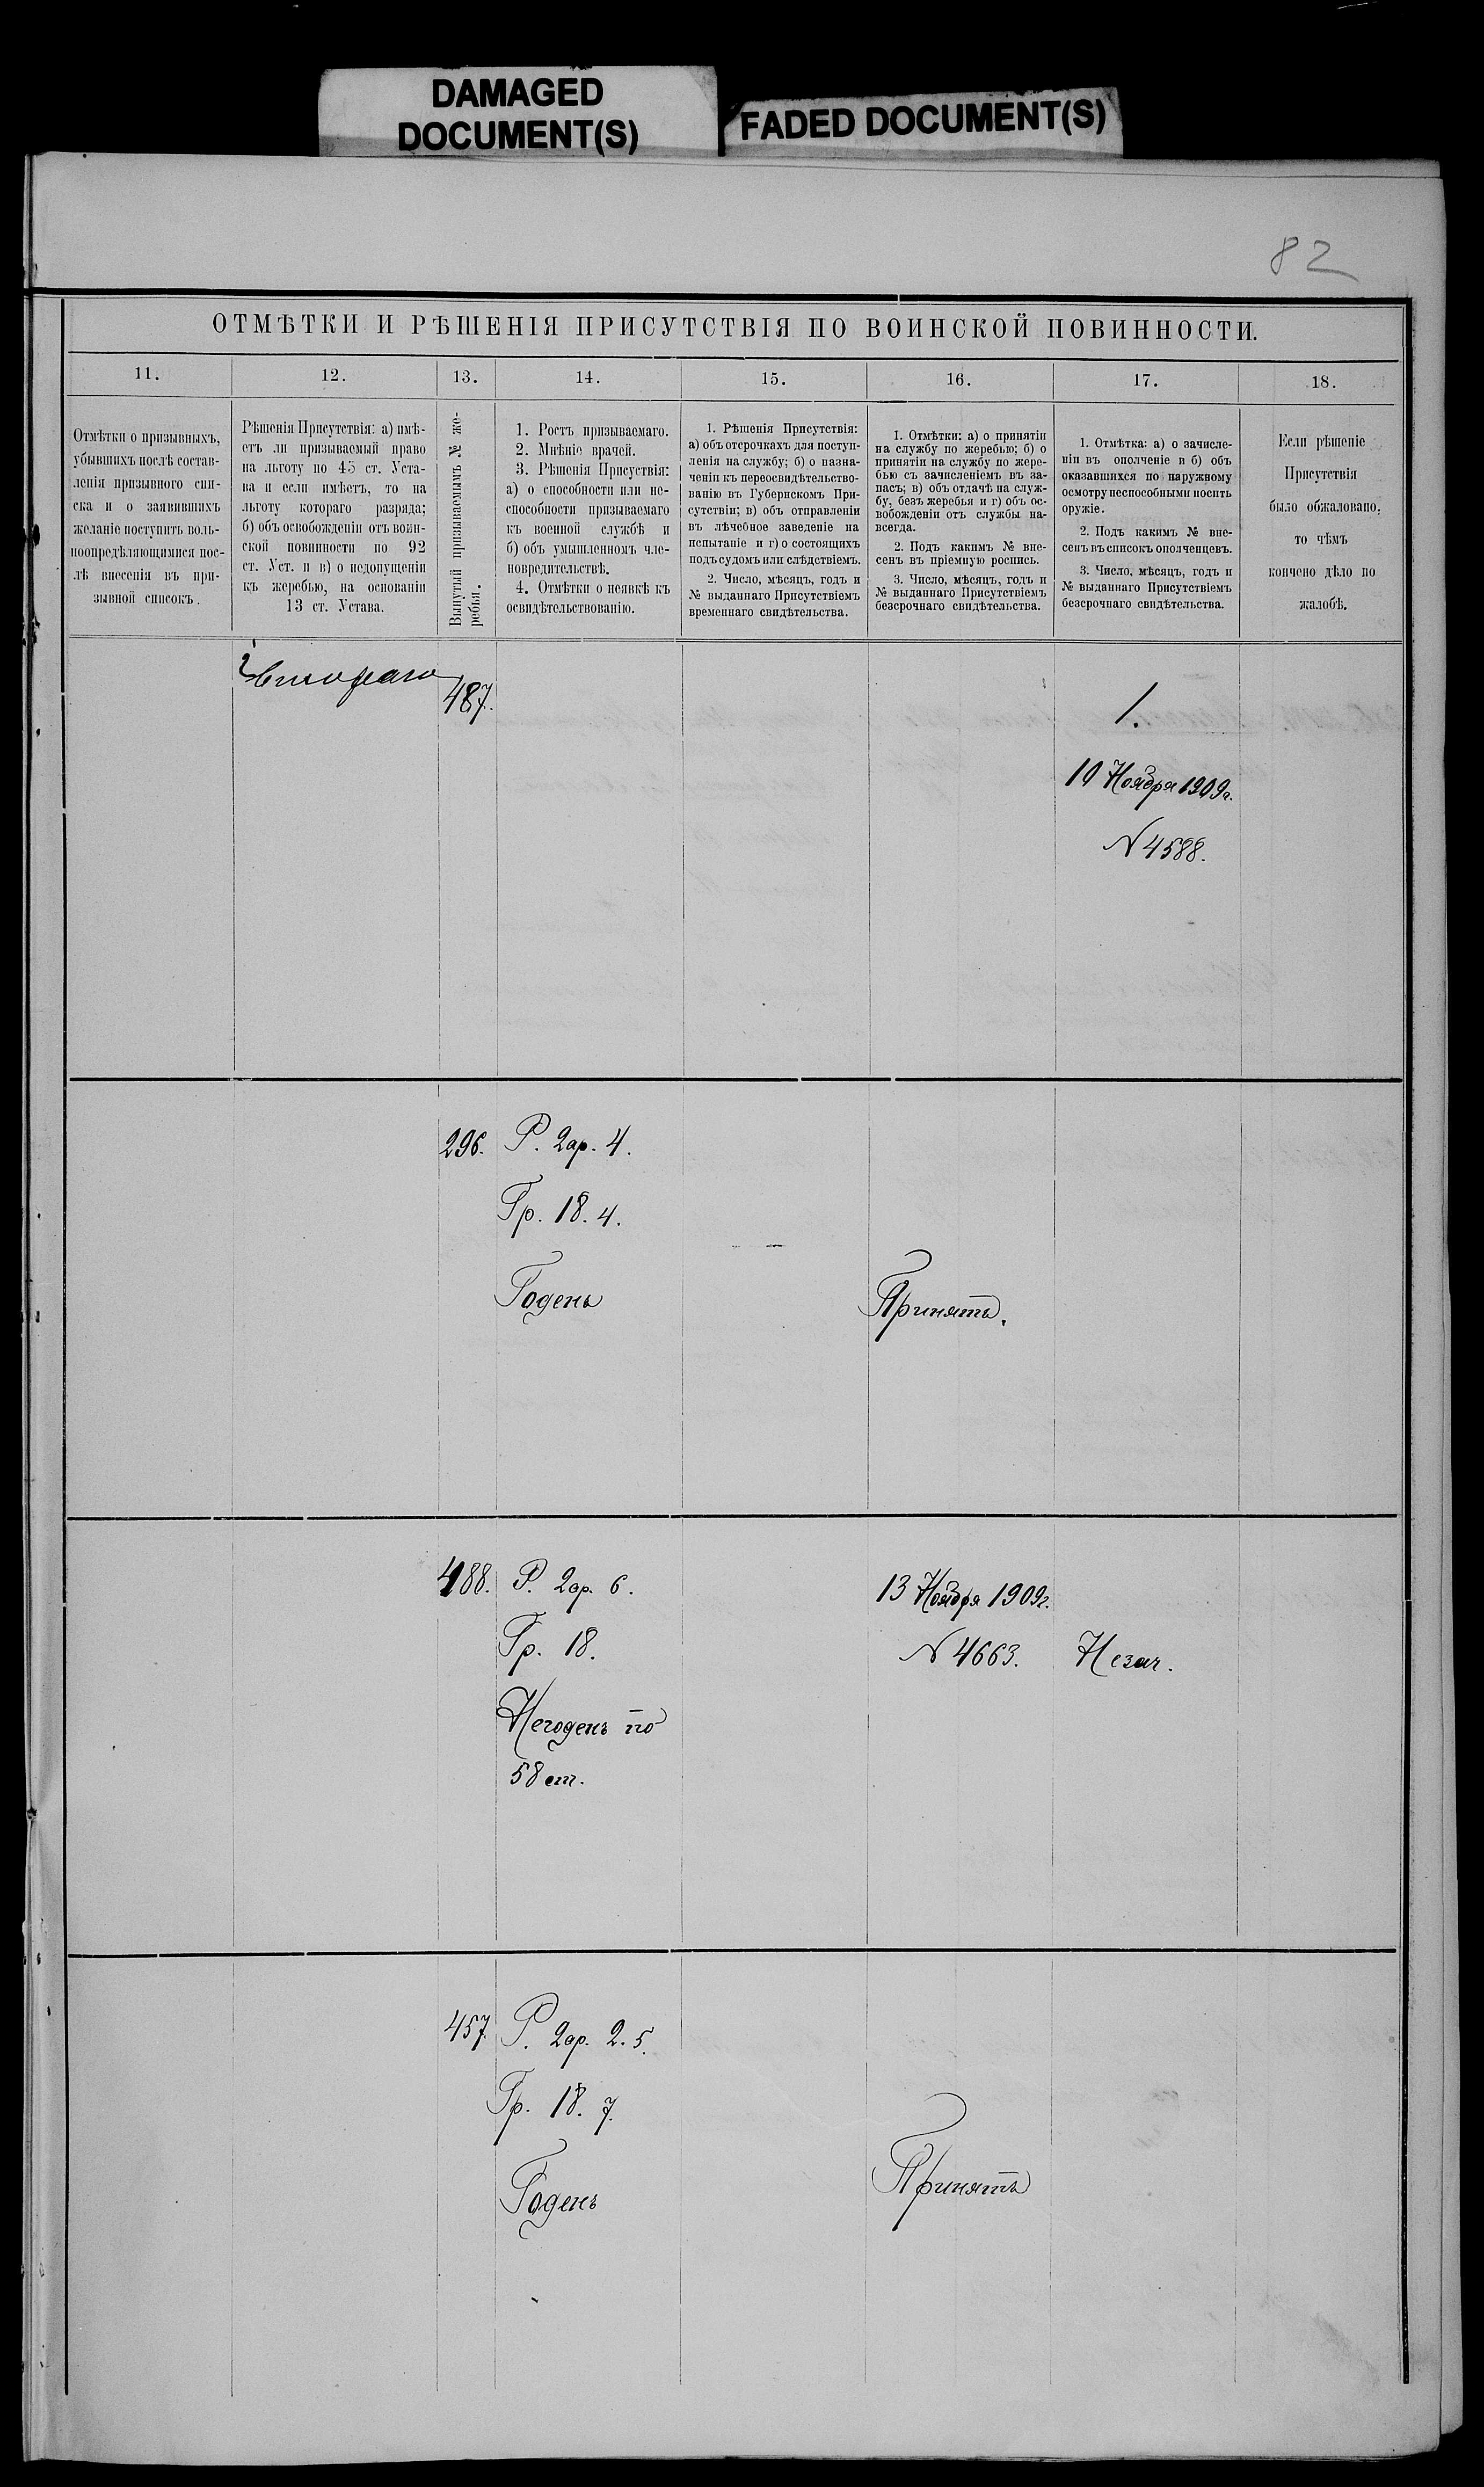 DAMAGED
DOCUMENT(S)
FADED DOCUMENT(S)
82
ОТМѢТКИ И РѢШЕНІЯ ПРИСУТСТВІЯ ПО ВОИНСКОЙ ПОВИННОСТИ.
11.
12.
13.
14.
15.
16.
17.
18.
Отмѣтки о призывныхъ,
убывшихъ послѣ состав-
ленія призывного спи-
ска и о заявившихъ
желаніе поступить воль-
ноопредѣляющимися пос-
лѣ внесенія въ при-
зывной списокъ.
Рѣшенія Присутствія: а) имѣ-
етъ ли призываемый право
на льготу по 45 ст. Уста-
ва и если имѣетъ, то на
льготу котораго разряда;
б) объ освобожденіи отъ воин-
ской повинности по 92
ст. Уст. и в) о недопущеніи
къ жеребью, на основаніи
13 ст. Устава.
Вынутый призываемымъ № же-
ребья.
1. Ростъ призываемаго.
2. Мнѣніе врачей.
3. Рѣшенія Присуствія:
а) о способности или не-
способности призываемаго
къ военной службѣ и
б) объ умышленномъ чле-
новредительствѣ.
4. Отмѣтки о неявкѣ къ
освидѣтельствованію.
1. Рѣшенія Присутствія:
а) объ отсрочкахъ для поступ-
ленія на службу; б) о назна-
ченіи къ переосвидѣтельство-
ванію въ Губернскомъ При-
сутствіи; в) объ отправленіи
въ лѣчебное заведеніе на
испытаніе и г) о состоящихъ
подъ судомъ или слѣдствіемъ.
2. Число, мѣсяцъ, годъ и
№ выданнаго Присутствіемъ
временнаго свидѣтельства.
1. Отмѣтки: а) о принятіи
на службу по жеребью; б) о
принятіи на службу по жере-
бью съ зачисленіемъ въ за-
пасъ; в) объ отдачѣ на служ-
бу, безъ жеребья и г) объ ос-
вобожденіи отъ службы на-
всегда.
2. Подъ какимъ № вне-
сенъ въ пріемную роспись.
3. Число, мѣсяцъ, годъ и
№ выданнаго Присутствіемъ
безсрочнаго свидѣтельства.
1. Отмѣтка: а) о зачисле-
ніи въ ополченіе и б) объ
оказавшихся по наружному
осмотру неспособными носить
оружіе.
2. Подъ какимъ № вне-
сенъ въ списокъ ополченцевъ.
3. Число, мѣсяцъ, годъ и
№ выданнаго Присутствіемъ
безсрочнаго свидѣтельства.
Если рѣшеніе
Присутствія
было обжаловано,
то чѣмъ
кончено дѣло по
жалобѣ.
Втораго
487.
1.
10 Ноября 1909г.
№ 4588.
296.
Р. 2ар. 4.
Гр. 18. 4.
Годенъ
Принятъ.
488.
Р. 2ар. 6.
Гр. 18.
Негоденъ по
58 ст.
13 Ноября 1909г.
№ 4663.
Незач.
457.
Р. 2ар. 2.5.
Гр. 18. 7.
Годенъ
Принятъ